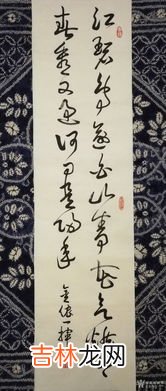 江碧鳥逾白山青花欲燃今
春看又過何日是歸年
吉林龙网